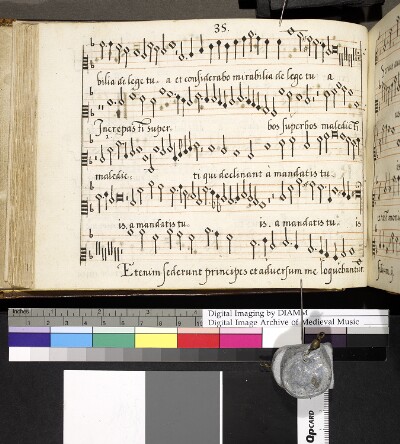 35.
bilia de lege tu. a et considerabo mirabilia de lege tu. a
Increpasti super. bos superbos maledicti
maledic. ti qui declinant a mandatis tu.
is. a mandatis tu. is. a mandatis tu. is
Etenim sederunt principes et adversum me loquebantur.
inches
Digital Imaging by DIAMM
Digital Image Archive of Medieval Music
QPCARD